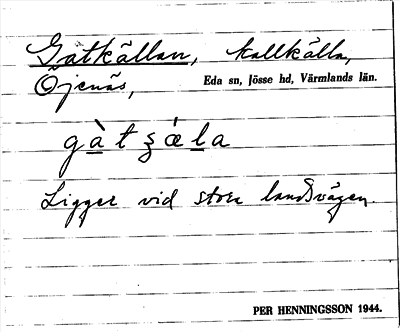 Gatkällan, kallkälla,
Öjenäs, Eda sn, Jösse hd, Värmlands län.
gàtʂǽla
Ligger vid stora landsvägen.
PER HENNINGSSON 1944.